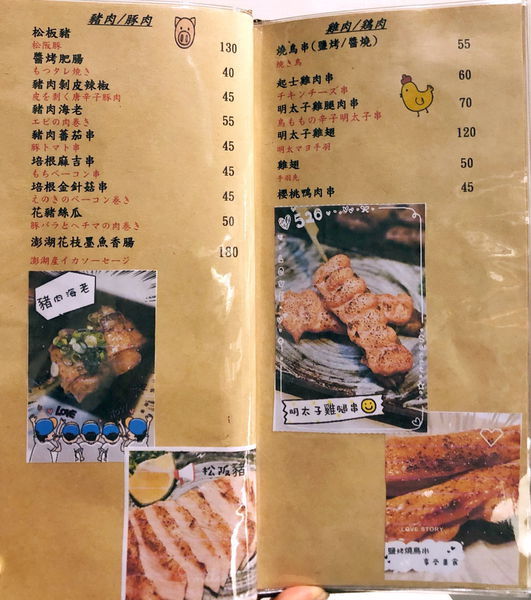 豬肉/豚肉
松板豬 130
松阪豚
醬烤肥腸 40
もつタレ焼き
豬肉剝皮辣椒 45
皮を剥く唐辛子豚肉
豬肉海老 55
エビの肉巻き
豬肉蕃茄串 45
豚トマト串
培根麻吉串 45
もちベーコン串
培根金針菇串 45
えのきのベーコン巻き
花豬絲瓜 50
豚バラとヘチマの肉巻き
澎湖花枝墨魚香腸 180
澎湖産イカソーセージ
豬肉海老
LOVE
松阪豬
雞肉/鶏肉
燒鳥串(鹽烤/醬燒) 55
焼き鳥
起士雞肉串 60
チキンチーズ串
明太子雞腿肉串 70
鳥ももの辛子明太子串
明太子雞翅 120
明太マヨ手羽
雞翅 50
手羽先
櫻桃鴨肉串 45
520
明太子雞腿串
LOVE STORY
鹽烤燒鳥串
享受美食